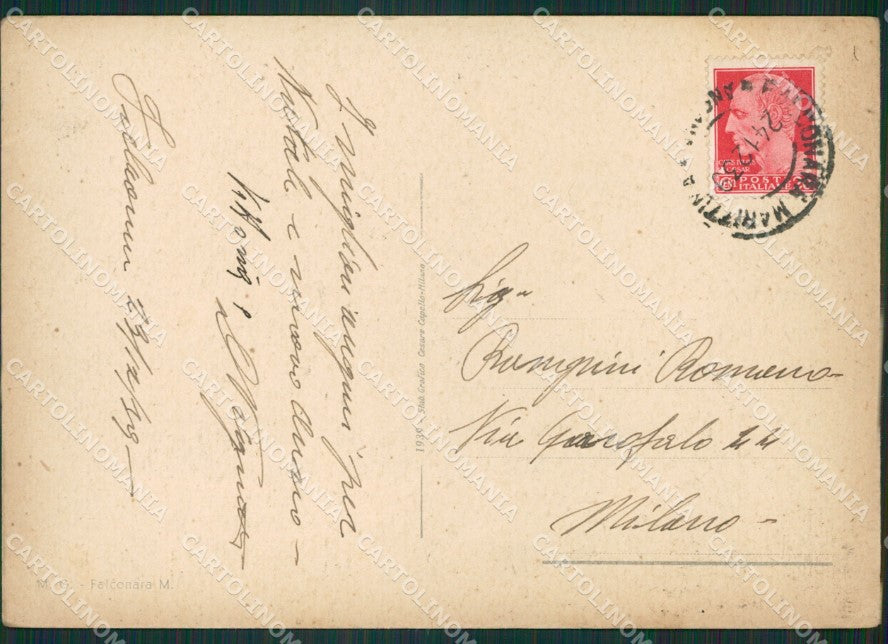 I migliori auguri per
Natale e nuovo anno
Falconara 23/12/39
M. G. - Falconara M.
1939 - Stab. Grafico Cesare Capello - Milano
POSTE
ITALIANE
FALCONARA MARITTIMA
24.12
Sig.
Romano
Via Garofalo 44
Milano
CARTOLINOMANIA